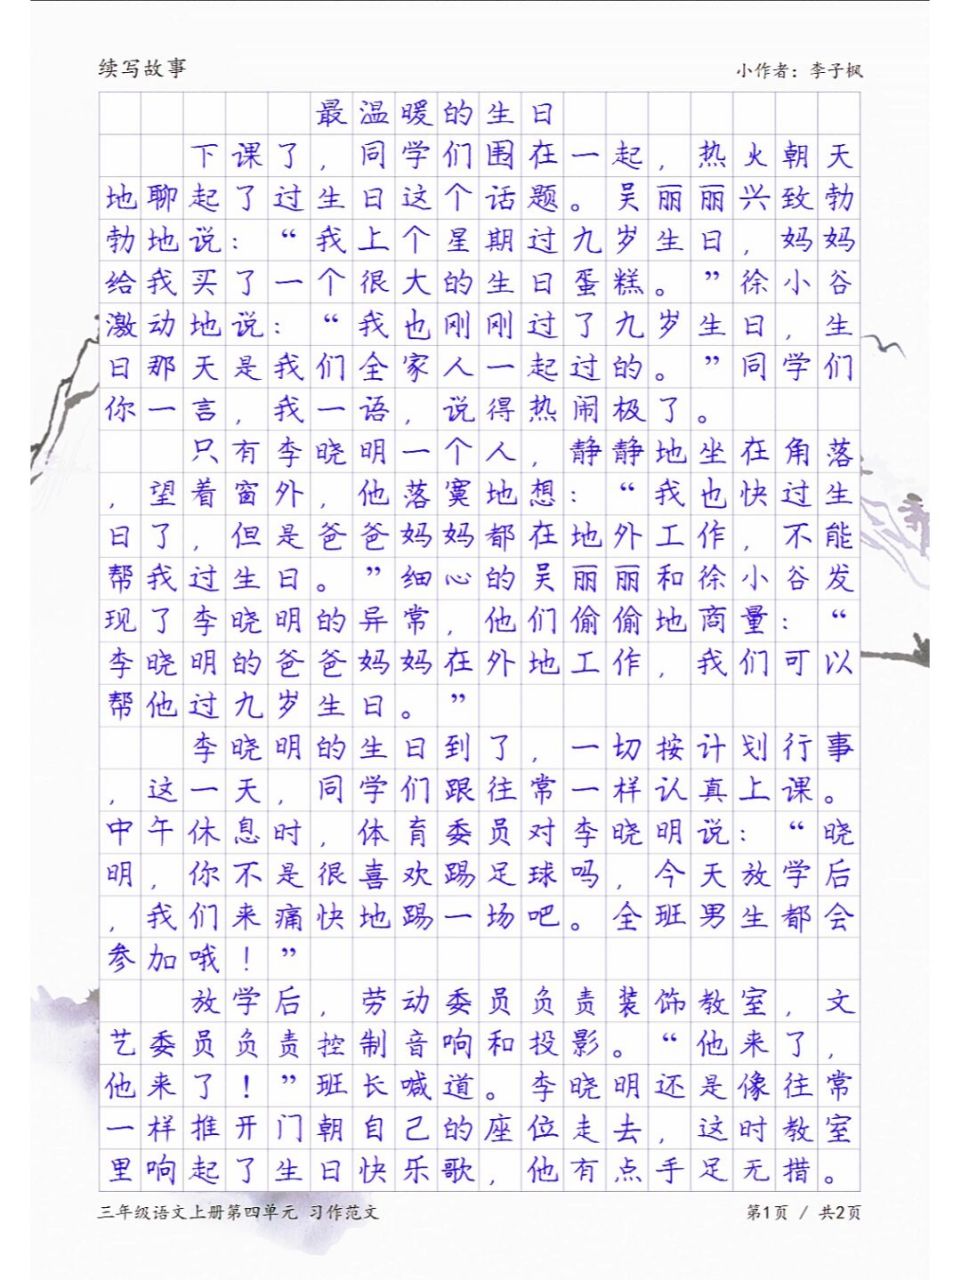 续写故事
小作者：李子枫
最温暖的生日
下课了，同学们围在一起，热火朝天
地聊起了过生日这个话题。吴丽丽兴致勃
勃地说：“我上个星期过九岁生日，妈妈
给我买了一个很大的生日蛋糕。”徐小谷
激动地说：“我也刚刚过了九岁生日，生
日那天是我们全家人一起过的。”同学们
你一言，我一语，说得热闹极了。
只有李晓明一个人，静静地坐在角落
，望着窗外，他落寞地想：“我也快过生
日了，但是爸爸妈妈都在地外工作，不能
帮我过生日。”细心的吴丽丽和徐小谷发
现了李晓明的异常，他们偷偷地商量：“
李晓明的爸爸妈妈在外地工作，我们可以
帮他过九岁生日。”
李晓明的生日到了，一切按计划行事
，这一天，同学们跟往常一样认真上课。
中午休息时，体育委员对李晓明说：“晓
明，你不是很喜欢踢足球吗，今天放学后
，我们来痛快地踢一场吧。全班男生都会
参加哦！”
放学后，劳动委员负责装饰教室，文
艺委员负责控制音响和投影。“他来了，
他来了！”班长喊道。李晓明还是像往常
一样推开门朝自己的座位走去，这时教室
里响起了生日快乐歌，他有点手足无措。
三年级语文上册第四单元 习作范文
第1页 / 共2页